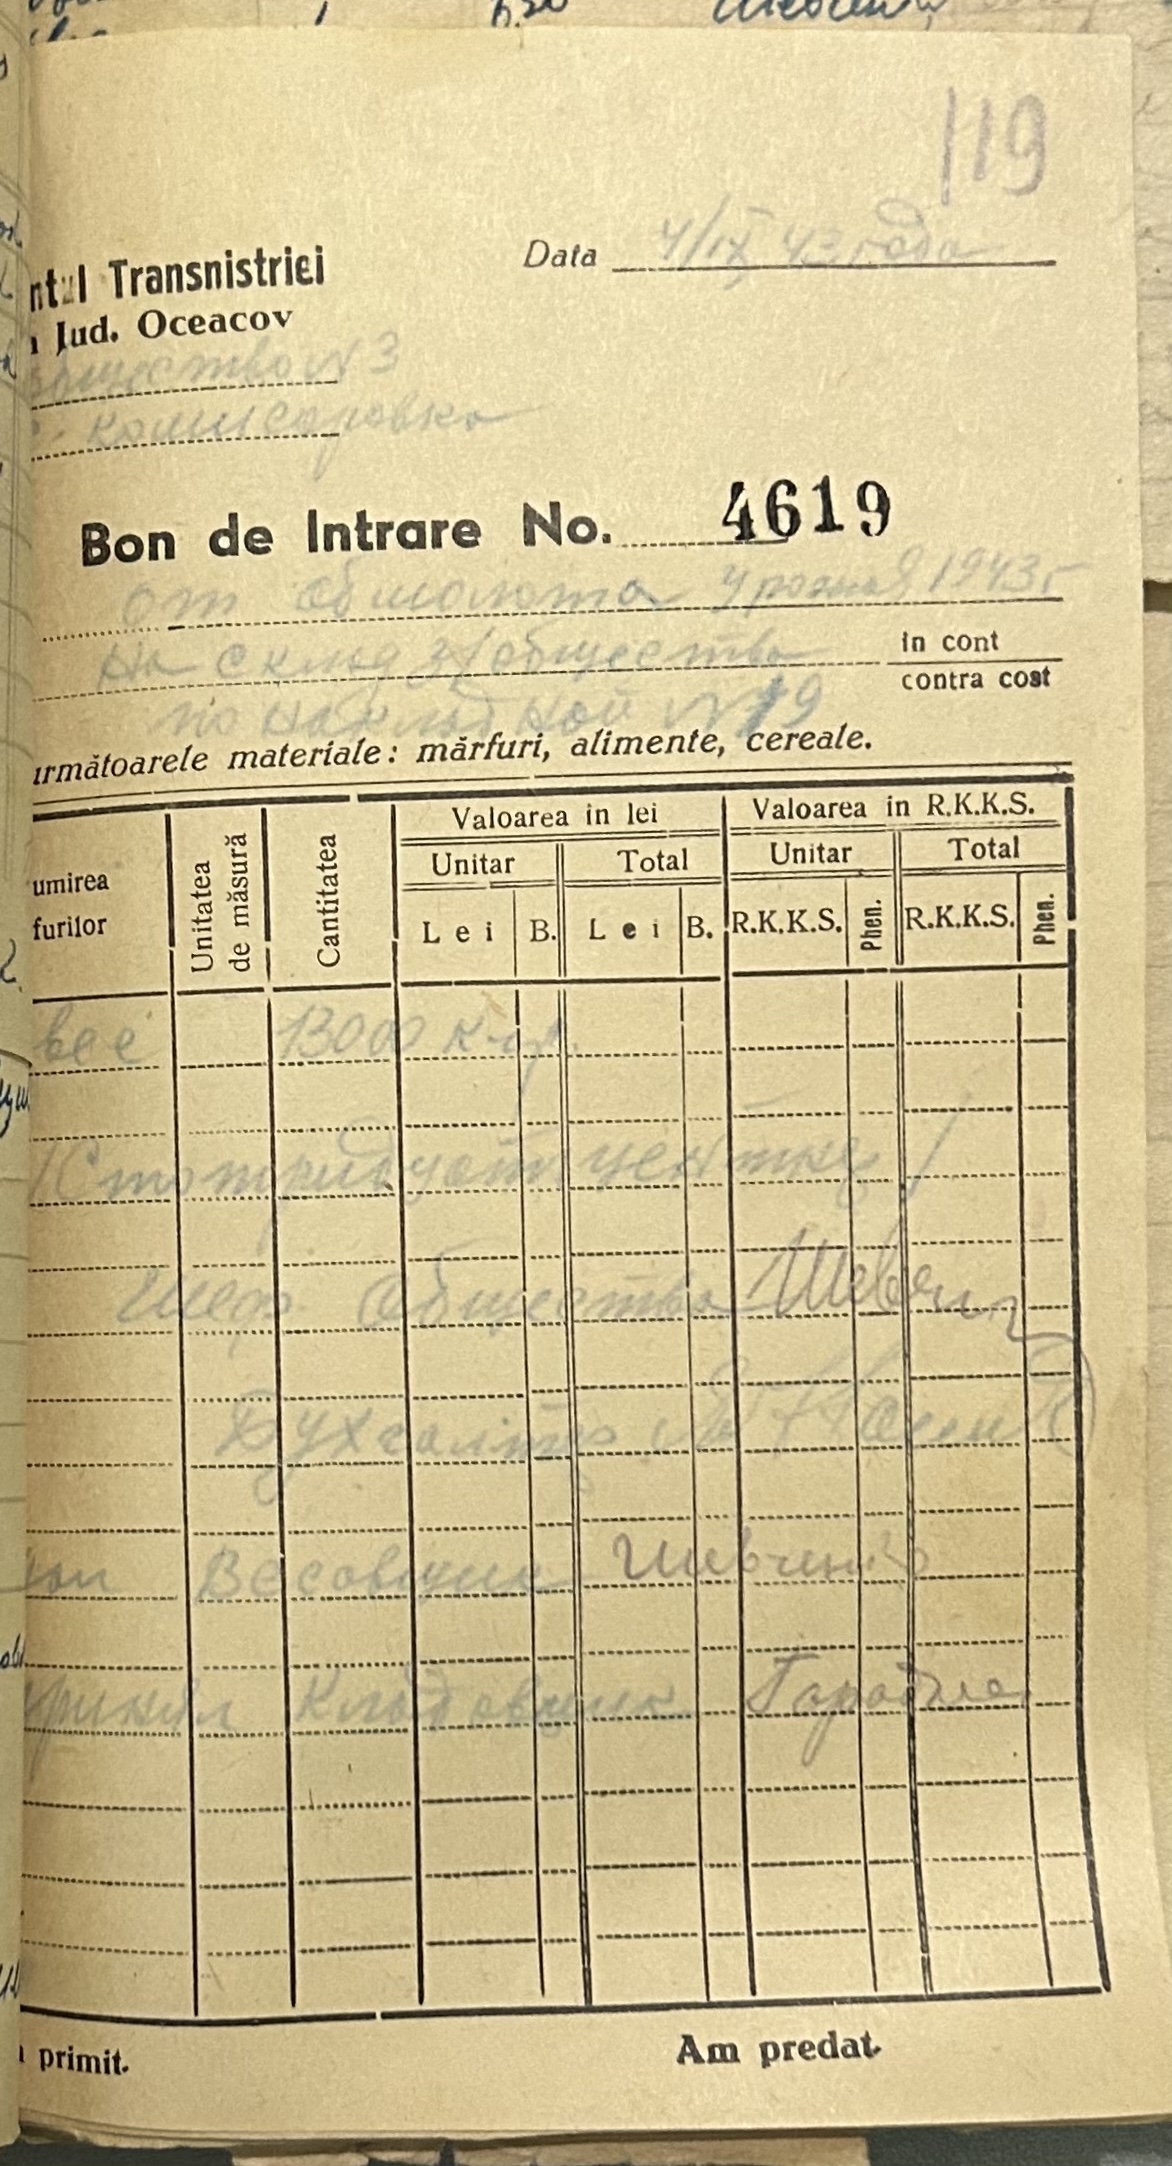 119
Data 4/IX 43 года
ntul Transnistriei
Jud. Oceacov
бщество N 3
с. комисаровка
Bon de Intrare No. 4619
от обмолота урожая 1943 г
на склад 3/общества
in cont
contra cost
по накладной N 19
următoarele materiale: mărfuri, alimente, cereale.
umirea furilor
Unitatea de măsură
Cantitatea
Valoarea in lei
Valoarea in R.K.K.S.
Unitar
Total
Unitar
Total
Lei
B.
Lei
B.
R.K.K.S.
Phen.
R.K.K.S.
Phen.
13000 кгр.
/Сто тридцат центнер/
Шеф Общества
Бухгалтер
Весовщик Шевченко
принял Кладовщик
primit.
Am predat.